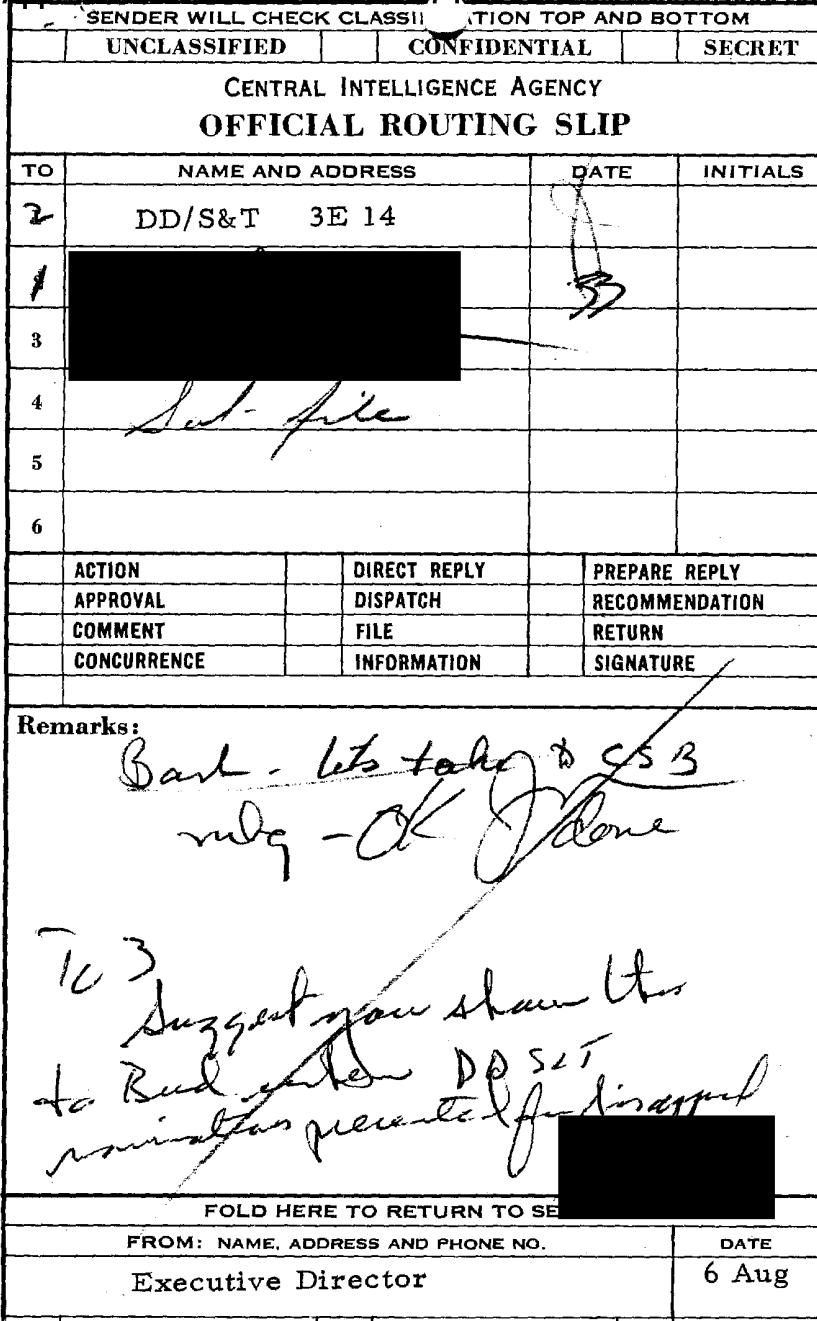 SENDER WILL CHECK CLASSI TION TOP AND BOTTOM
UNCLASSIFIED CONFIDENTIAL SECRET
CENTRAL INTELLIGENCE AGENCY
OFFICIAL ROUTING SLIP
TO NAME AND ADDRESS DATE INITIALS
2 DD/S&T 3E 14
1
3
4 file
5
6
ACTION DIRECT REPLY PREPARE REPLY
APPROVAL DISPATCH RECOMMENDATION
COMMENT FILE RETURN
CONCURRENCE INFORMATION SIGNATURE
Remarks:
lets take to CSB
mtg - OK done
To 3
Suggest you show this
to Bud when DDS&T
nominations presented for
FOLD HERE TO RETURN TO SE
FROM: NAME, ADDRESS AND PHONE NO. DATE
Executive Director 6 Aug